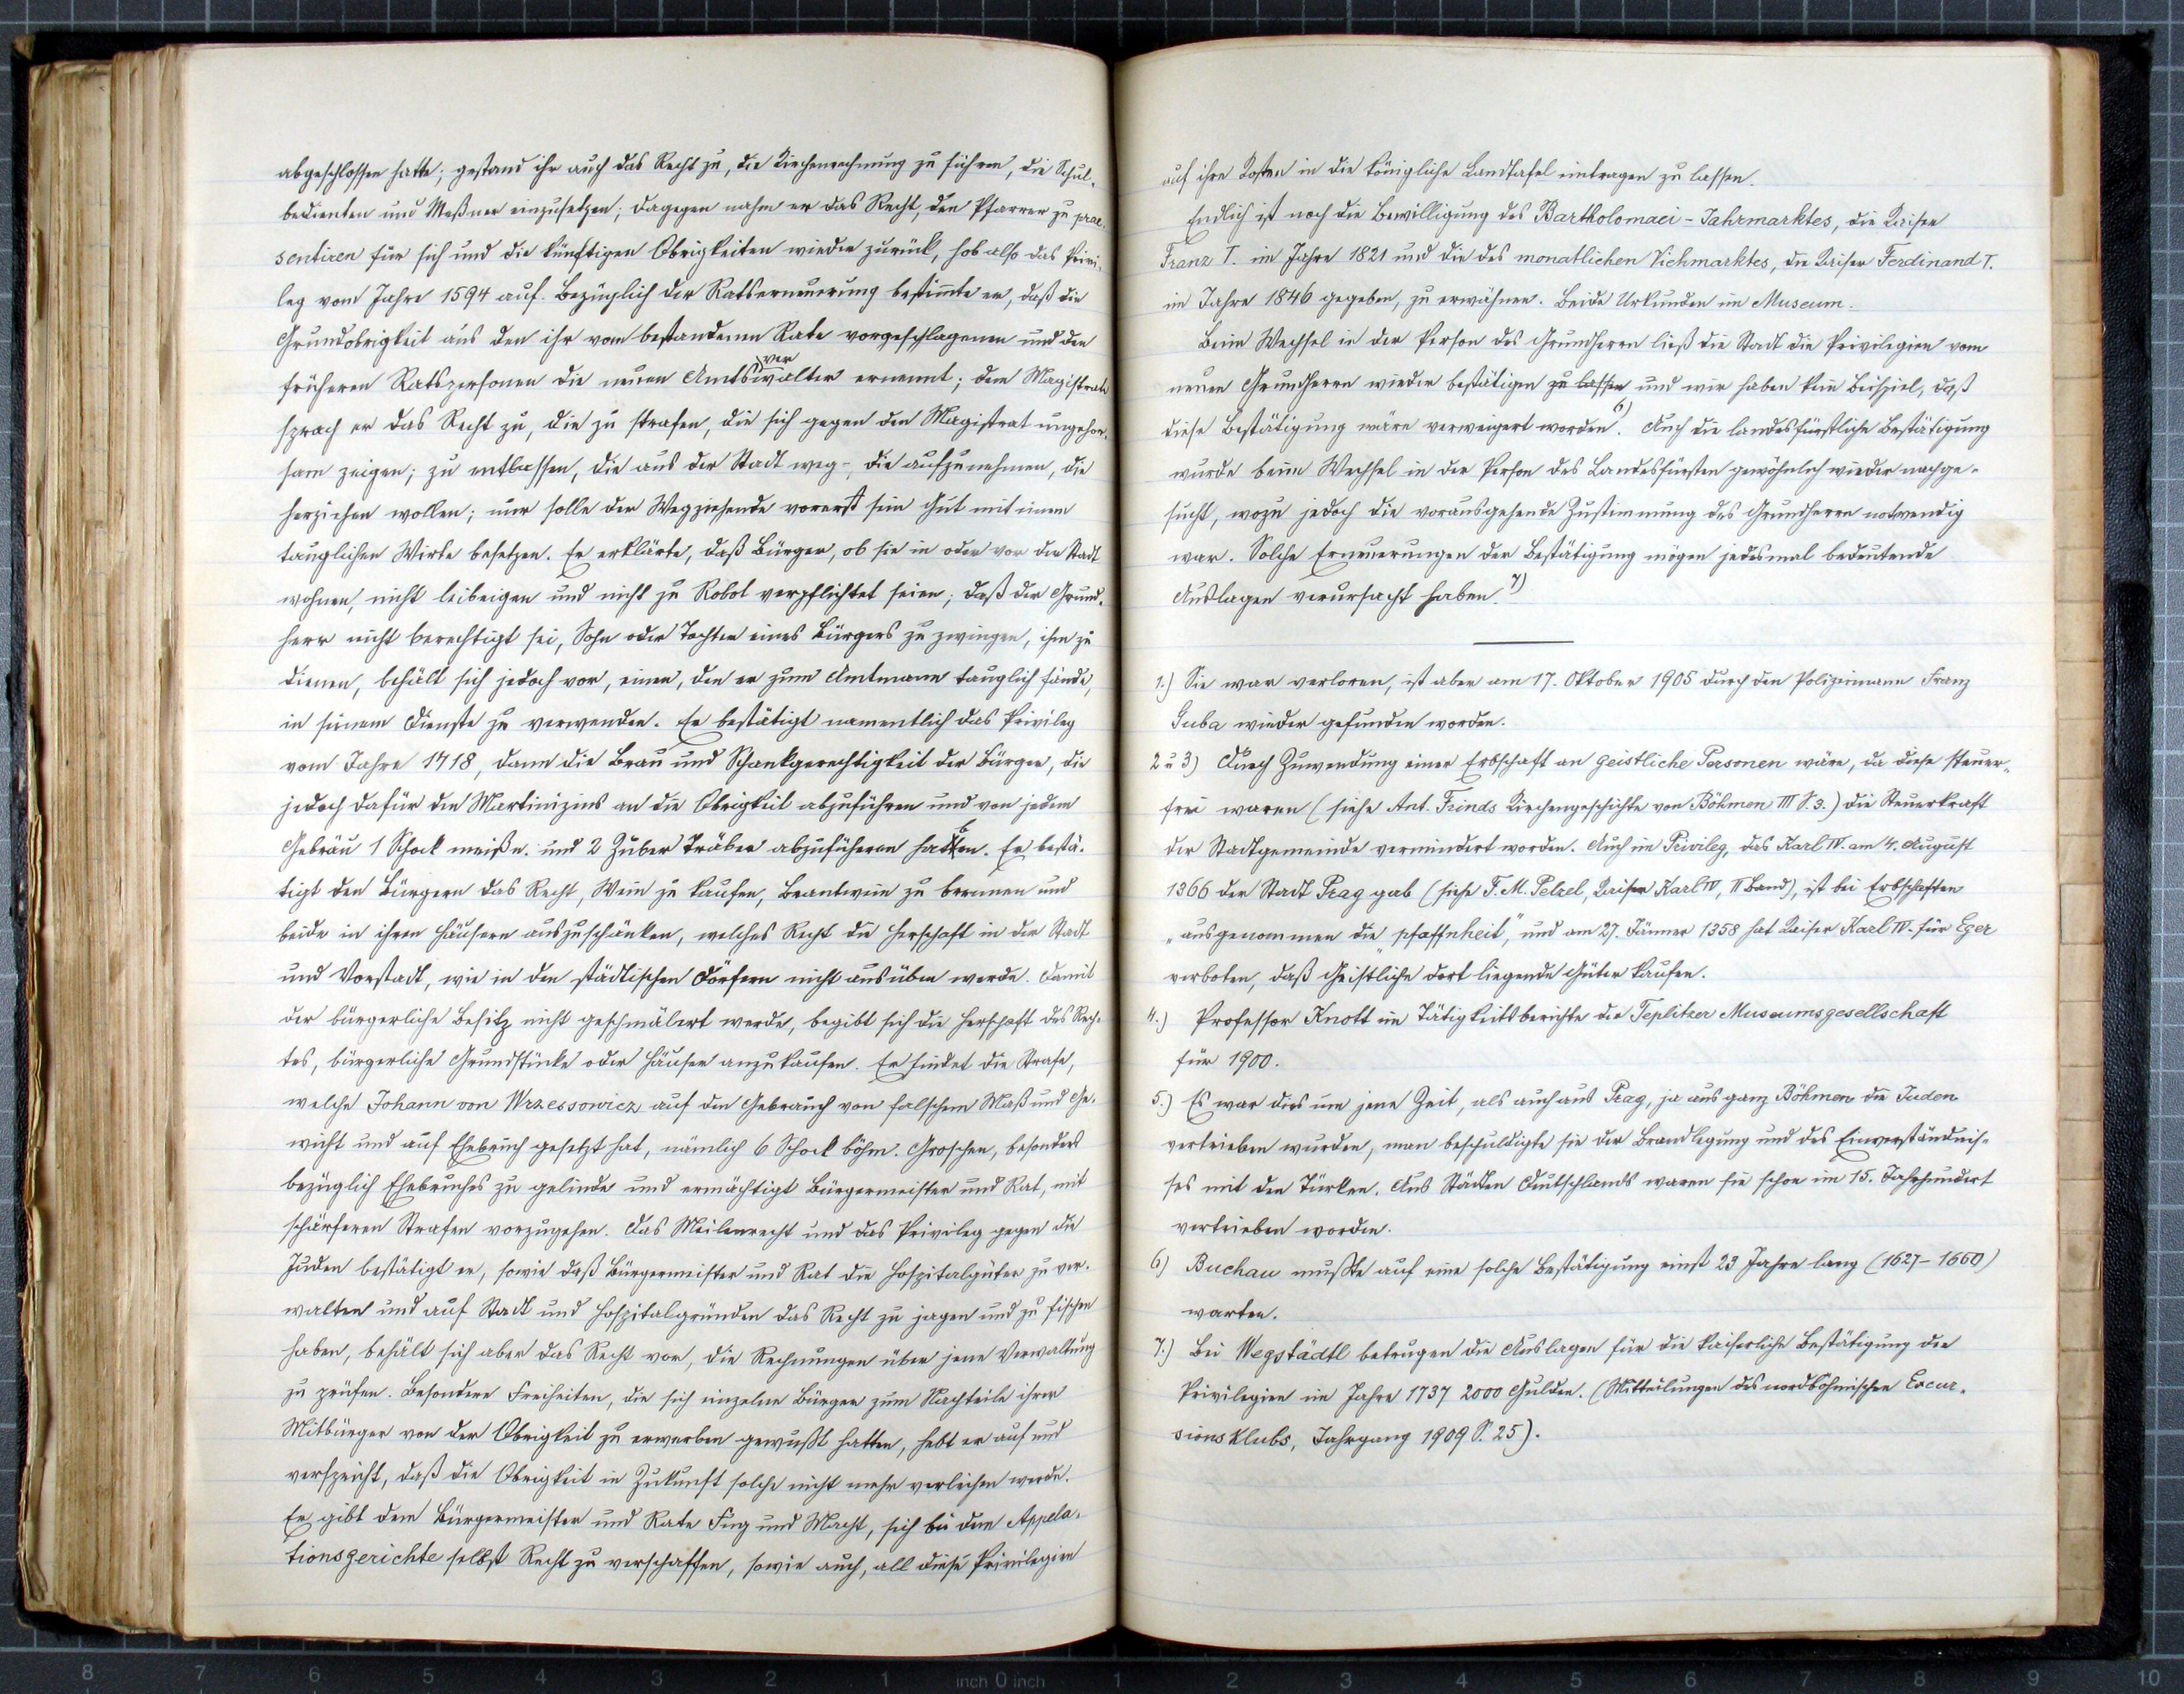 abgeschlossen hatte; gestand ihr auch das Recht zu, die Kirchenrechnung zu führen, die Schul-
bedienten und Meßner einzusetzen; dagegen nahm er das Recht, den Pfarrer zu prae-
sentiren für sich und die künftigen Obrigkeiten wieder zurück, hob also das Privi-
leg vom Jahre 1594 auf. Bezüglich der Ratserneuerung bestimte er, daß die
Grundobrigkeit aus den ihr vom bestandenen Rate vorgeschlagenen und den
früheren Ratspersonen die neuen Amtsverwalter ernennt; dem Magistrate
sprach er das Recht zu, die zu strafen, die sich gegen den Magistrat ungehor-
sam zeigen; zu entlassen, die aus der Stadt weg-, die aufzunehmen, die
herziehen wollen; nur solle der Wegziehende vorerst sein Gut mit einem
tauglichen Wirte besetzen. Er erklärte, daß Bürger, ob sie in oder vor der Stadt
wohnen, nicht leibeigen und nicht zu Robot verpflichtet seien; daß der Grund-
herr nicht berechtigt sei, Sohn oder Tochter eines Bürgers zu zwingen, ihm zu
dienen, behält sich jedoch vor, einen, den er zum Amtmann tauglich fände,
in seinem Dienste zu verwenden. Er bestätigt namentlich das Privileg
vom Jahre 1718, dann die Brau und Schankgerechtigkeit der Bürger, die
jedoch dafür den Martinizins an die Obrigkeit abzuführen und von jedem
Gebräu 1 Schock meißn. und 2 Zuber Träber abzuführen haben. Er bestä-
tigt den Bürgern das Recht, Wein zu kaufen, Brantwein zu brennen und
beide in ihren Häusern auszuschänken, welches Recht die Herschaft in der Stadt
und Vorstadt, wie in den städtischen Dörfern nicht ausüben werde. Damit
der bürgerliche Besitz nicht geschmälert werde, begibt sich die Herschaft des Rech-
tes, bürgerliche Grundstücke oder Häuser anzukaufen. Er findet die Strafe,
welche Johann von Wrzessowicz auf den Gebrauch von falschem Maß und Ge-
wicht und auf Ehebruch gesetzt hat, nämlich 6 Schock böhm. Groschen, besonders
bezüglich Ehebruches zu gelinde und ermächtigt Bürgermeister und Rat, mit
schärferen Strafen vorzugehen. Das Meilenrecht und das Privileg gegen die
Juden bestätigt er, sowie daß Bürgermeister und Rat die Hospitalgüter zu ver-
walten und auf Stadt und Hospitalgründen das Recht zu jagen und zu fischen
haben, behält sich aber das Recht vor, die Rechnungen über jene Verwaltung
zu prüfen. Besondere Freiheiten, die sich einzelne Bürger zum Nachteile ihrer
Mitbürger von der Obrigkeit zu erwerben gewußt hatten, hebt er auf und
verspricht, daß die Obrigkeit in Zukunft solche nicht mehr verleihen werde.
Er gibt dem Bürgermeister und Rate Fug und Macht, sich bei dem Appela-
tionsgerichte selbst Recht zu verschaffen, sowie auch, all diese Privilegien
auf ihre Kosten in die königliche Landtafel eintragen zu lassen.
Endlich ist noch die Bewilligung des Bartholomaei-Jahrmarktes, die Kaiser
Franz I. im Jahre 1821 und die des monatlichen Viehmarktes, die Kaiser Ferdinand I.
im Jahre 1846 gegeben, zu erwähnen. Beide Urkunden im Museum.
Beim Wechsel in der Person des Grundherrn ließ die Stadt die Privilegien vom
neuen Grundherrn wieder bestätigen zu lassen und wir haben kein Beispiel, daß
diese Bestätigung wäre verweigert worden 6). Auch die landesfürstliche Bestätigung
wurde beim Wechsel in der Person des Landesfürsten gewöhnlich wieder nachge-
sucht, wozu jedoch die vorausgehende Zustimmung des Grundherrn notwendig
war. Solche Erneuerungen der Bestätigung mögen jedesmal bedeutende
Auslagen verursacht haben. 7)
1.) Sie war verloren, ist aber am 17. Oktober 1905 durch den Polizeimann Franz
Guba wieder gefunden worden.
2 u 3) Durch Zuwendung einer Erbschaft an geistliche Personen wäre, da diese steuer-
frei waren (siehe Ant. Frinds Kirchengeschichte von Böhmen III S. 3.) die Steuerkraft
der Stadtgemeinde vermindert worden. Auch im Privileg, das Karl IV. am 4. August
1366 der Stadt Prag gab (siehe F. M. Pelzel, Kaiser Karl IV, II Band), ist bei Erbschaften
„ausgenommen die pfaffnheit", und am 27. Jänner 1358 hat Kaiser Karl IV. für Eger
verboten, daß Geistliche dort liegende Güter kaufen.
4.) Professor Knott im Tätigkeitsberichte der Teplitzer Museumsgesellschaft
für 1900.
5.) Es war dies um jene Zeit, als auch aus Prag, ja aus ganz Böhmen die Juden
vertrieben wurden, man beschuldigte sie der Brandlegung und des Einverständnis-
ses mit den Türken. Aus Städten Deutschlands waren sie schon im 15. Jahrhundert
vertrieben worden.
6) Buchau mußte auf eine solche Bestätigung einst 23 Jahre lang (1627-1660)
warten.
7.) Bei Wegstädtl betrugen die Auslagen für die kaiserliche Bestätigung der
Privilegien im Jahre 1737 2000 Gulden. (Mitteilungen des nordböhmischen Excur-
sionsklubs, Jahrgang 1909 S. 25).
8 7 6 5 4 3 2 1 inch 0 inch 1 2 3 4 5 6 7 8 9 10